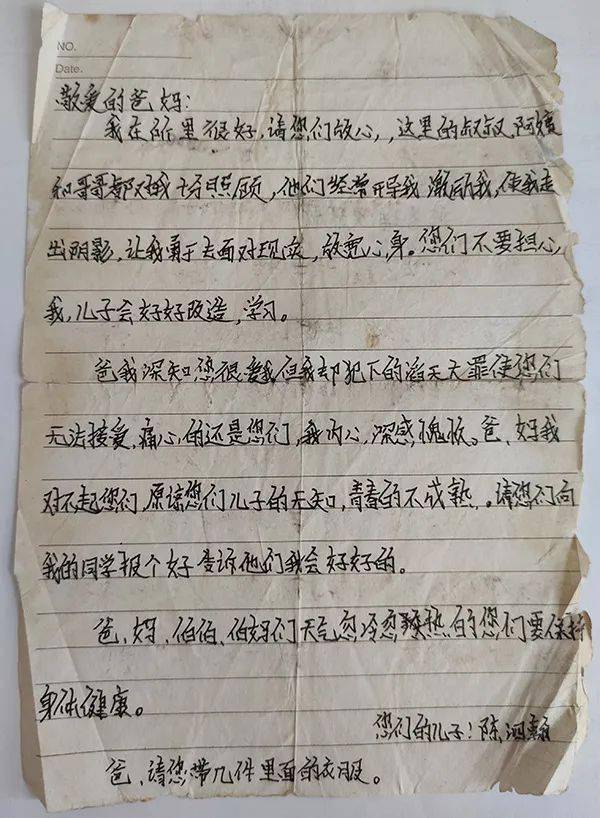 NO.
Date.
敬爱的爸妈:
我在所里很好,请您们放心,,这里的叔叔,阿姨
和哥哥都对我十分照顾,他们经常开导我 激励我,使我走
出阴影,让我勇于去面对现实,放宽心身。您们不要担心,
我,儿子会好好改造,学习。
爸我深知您很爱我,但我却犯下的滔天大罪使您们
无法接爱,痛心的还是您们,我内心,深感愧疚。爸、妈我
对不起您们,原谅您们儿子的无知,青春的不成熟,。请您们向
我的同学报个好告诉他们我会好好的。
爸、妈、伯伯、伯妈们天气忽冷忽热的您们要保持
身体健康。
您们的儿子:陈泗翰
爸、请您带几件里面的衣服。